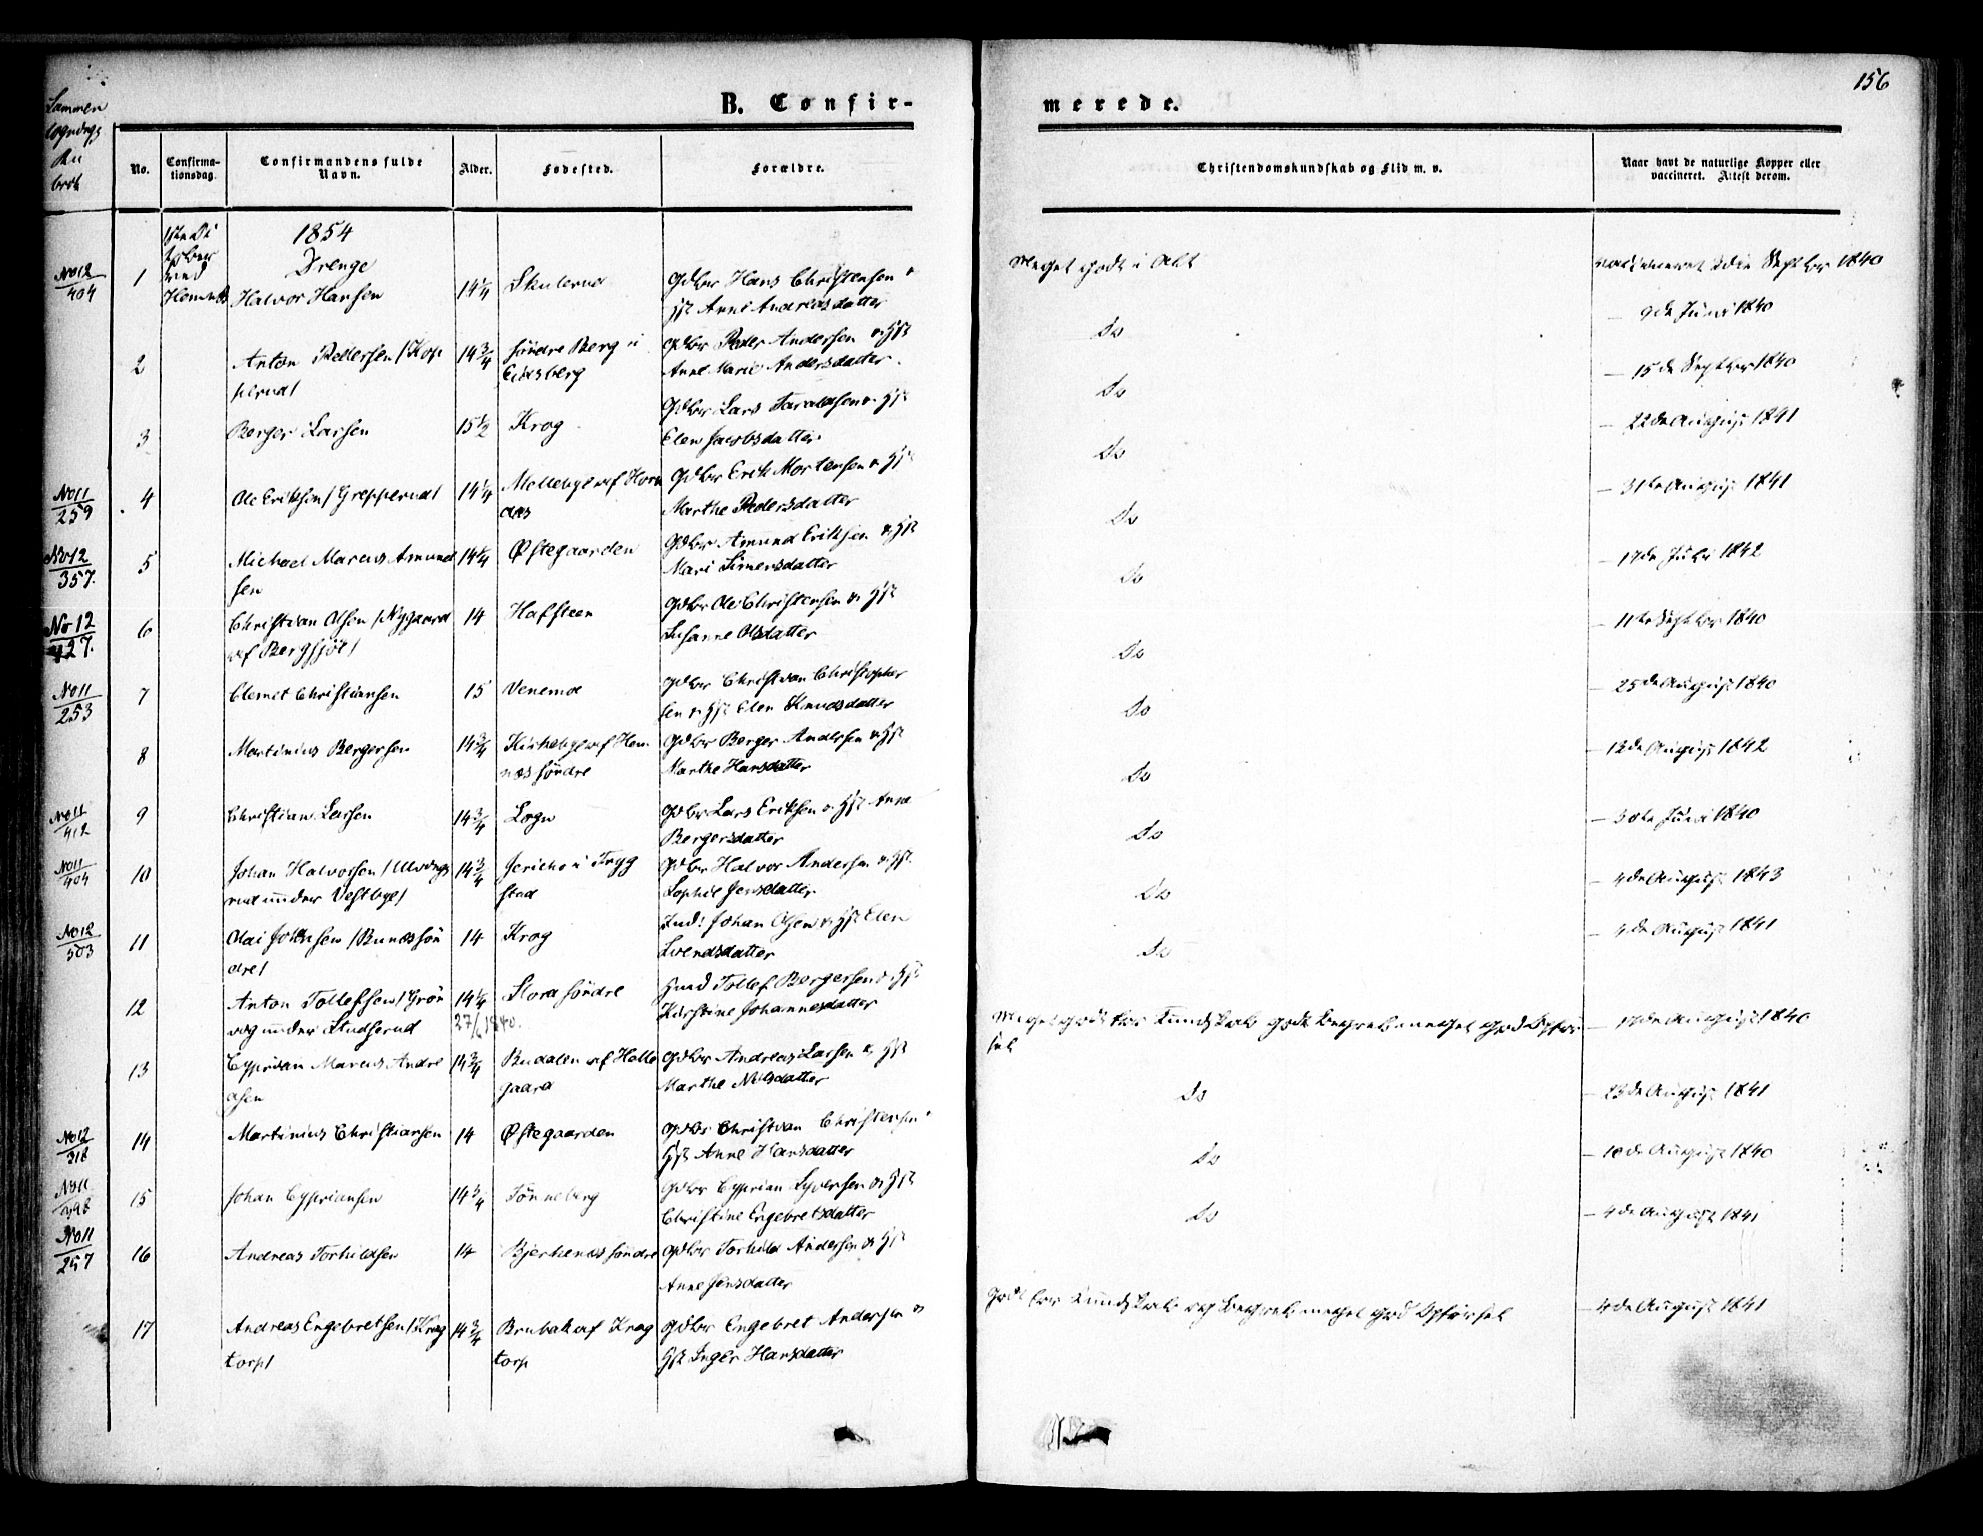 156
B. Confir-
merede.
No.
Confirma-
tionsdag.
Confirmandens fulde
Navn.
Alder.
Fødested.
Forældre.
Christendomskundskab og Flid m. v.
Naar havt de naturlige Kopper eller
vaccineret. Attest derom.
1854
Drenge
No 12
404
1
Halvor Hansen
14 1/4
Skulerud
Gdbr Hans Christensen
Hst Anne Andreasdatter
Meget godt i Alt
1840
2
Anton Pedersen / Kop
perud /
14 3/4
Søndre Berg i
Eidsberg
Gdbr Peder Andersen
Anne Marie Andersdatter
Do
9de Juni 1840
3
Berger Larsen
15 1/2
Krog
Gdbr Lars
Elen Jacobsdatter
Do
15de Septbr 1840
No 11
259
4
Ole Eriksen
14 1/4
Gdbr Erik Mortensen
Marthe Pedersdatter
Do
22de August 1841
No 12
357.
5
Michael Marcus Amund
sen
14 1/4
Østegaarden
Gdbr Amund Eriksen
Mari Simensdatter
Do
31te August 1841
No 12
427.
6
Christian Olsen / Nygaard
14
Hafsteen
Gdbr Ole Christensen
Susanne Olsdatter
Do
17de Juli 1842
No 11
253
7
Clemet Christiansen
15
Venemoe
Gdbr Christian Christopher
sen Hst Elen Knudsdatter
Do
11te Septbr 1840
8
Martinius Bergersen
14 3/4
Kirkebye af Hem
næs søndre
Gdbr Berger Andersen
Marthe Hansdatter
Do
25de August 1840
No 11
412
9
Christian Larsen
14 3/4
Løgn
Gdbr Lars Eriksen Hst Anne
Bergersdatter
Do
12de August 1842
No 11
404
10
Johan Halvorsen
under Vestbye /
14 3/4
Jericho i Tryg
stad
Gdbr Halvor Andersen
Sophie Jensdatter
Do
30te Juni 1840
No 12
503
11
Olai Johansen
14
Krog
Ind: Johan Olsen Hst Elen
Svendsdatter
Do
4de August 1843
12
Anton Tollefsen / Grøn
14 1/4
27/6 1840.
Slora søndre
Hmd Tollef Borgersen
Kirstine Johannesdatter
4de August 1841
13
Cyprian Marcus Andre
asen
14 3/4
Budalen af Helle
gaard
Gdbr Andreas Larsen
Marthe Nilsdatter
Do
17de August 1840
No 12
318
14
Martinius Christiansen
14
Østegaarden
Gdbr Christian Christensen
Hst Anne Hansdatter
Do
23de August 1841
No 11
15
Johan Cypriansen
14 3/4
Tønneberg
Gdbr Cyprian Syversen
Christine Engebretsdatter
Do
10de August 1840
No 11
257
16
Andreas Torkildsen
14
Bjerkenæs søndre
Gdbr Torkild Andersen
Anne Jensdatter
4de August 1841
17
Andreas Engebretsen / Krog
torp /
14 3/4
Brubak af Krog
torp
Gdbr Engebret Andersen
Hst Inger Hansdatter
Godt for Kundskab og Begreb meget god Opførsel
4de August 1841